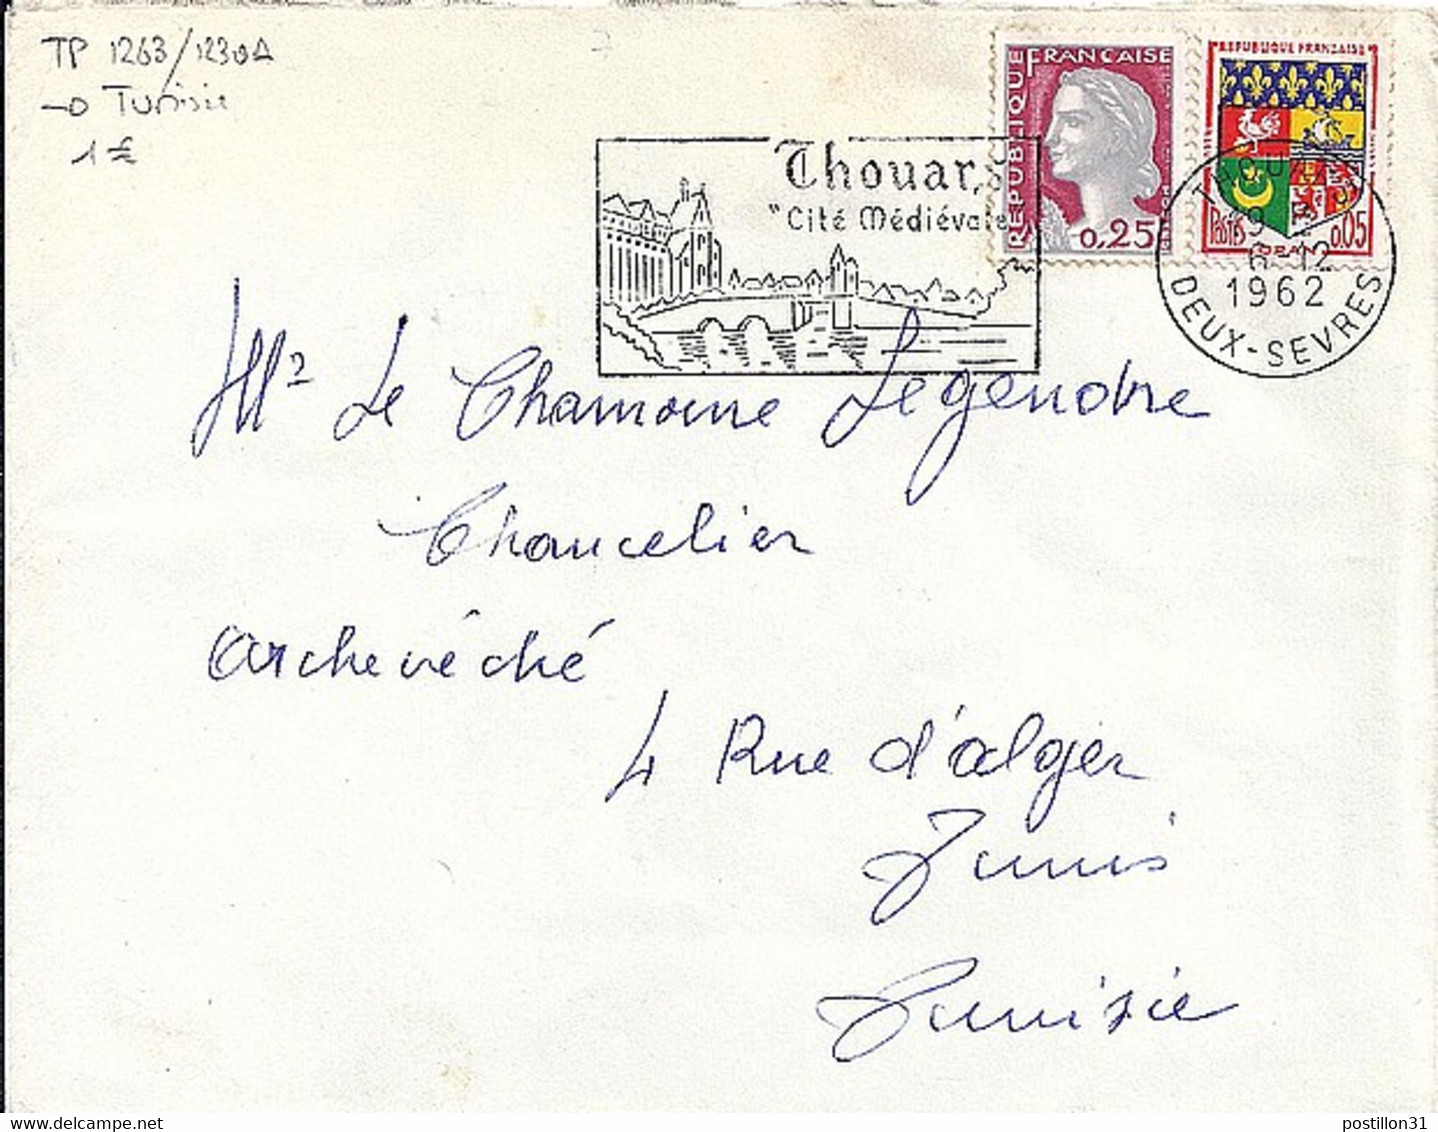 TP 1263/1230A
→ Tunisie
1 €
RÉPUBLIQUE FRANÇAISE
0,25
REPUBLIQUE FRANÇAISE
POSTES
ORAN
0.05
Thouars
"Cité Médiévale
THOUARS
19 H
6-12
1962
DEUX-SEVRES
Mr Le Chanoine Legendre
Chancelier
Archevêché
4 Rue d'Alger
Tunis
Tunisie
postillon31